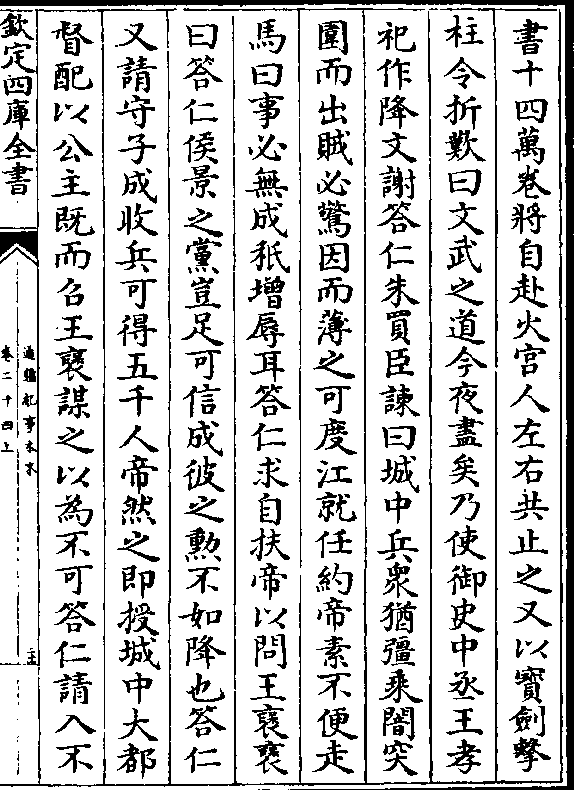 書十四萬卷將自赴火宫人左右共止之又以寳劍擊
柱令折歎曰文武之道今夜盡矣乃使御史中丞王孝
祀作降文謝答仁朱買臣諫曰城中兵衆猶彊乘闇突
圍而出賊必驚因而薄之可度江就任約帝素不便走
馬曰事必無成秖增辱耳答仁求自扶帝以問王襃襃
曰答仁侯景之黨豈足可信成彼之勲不如降也答仁
又請守子成收兵可得五千人帝然之即授城中大都
督配以公主既而召王襃謀之以為不可答仁請入不
欽定四庫全書
通鑑紀事本末
卷二十四上